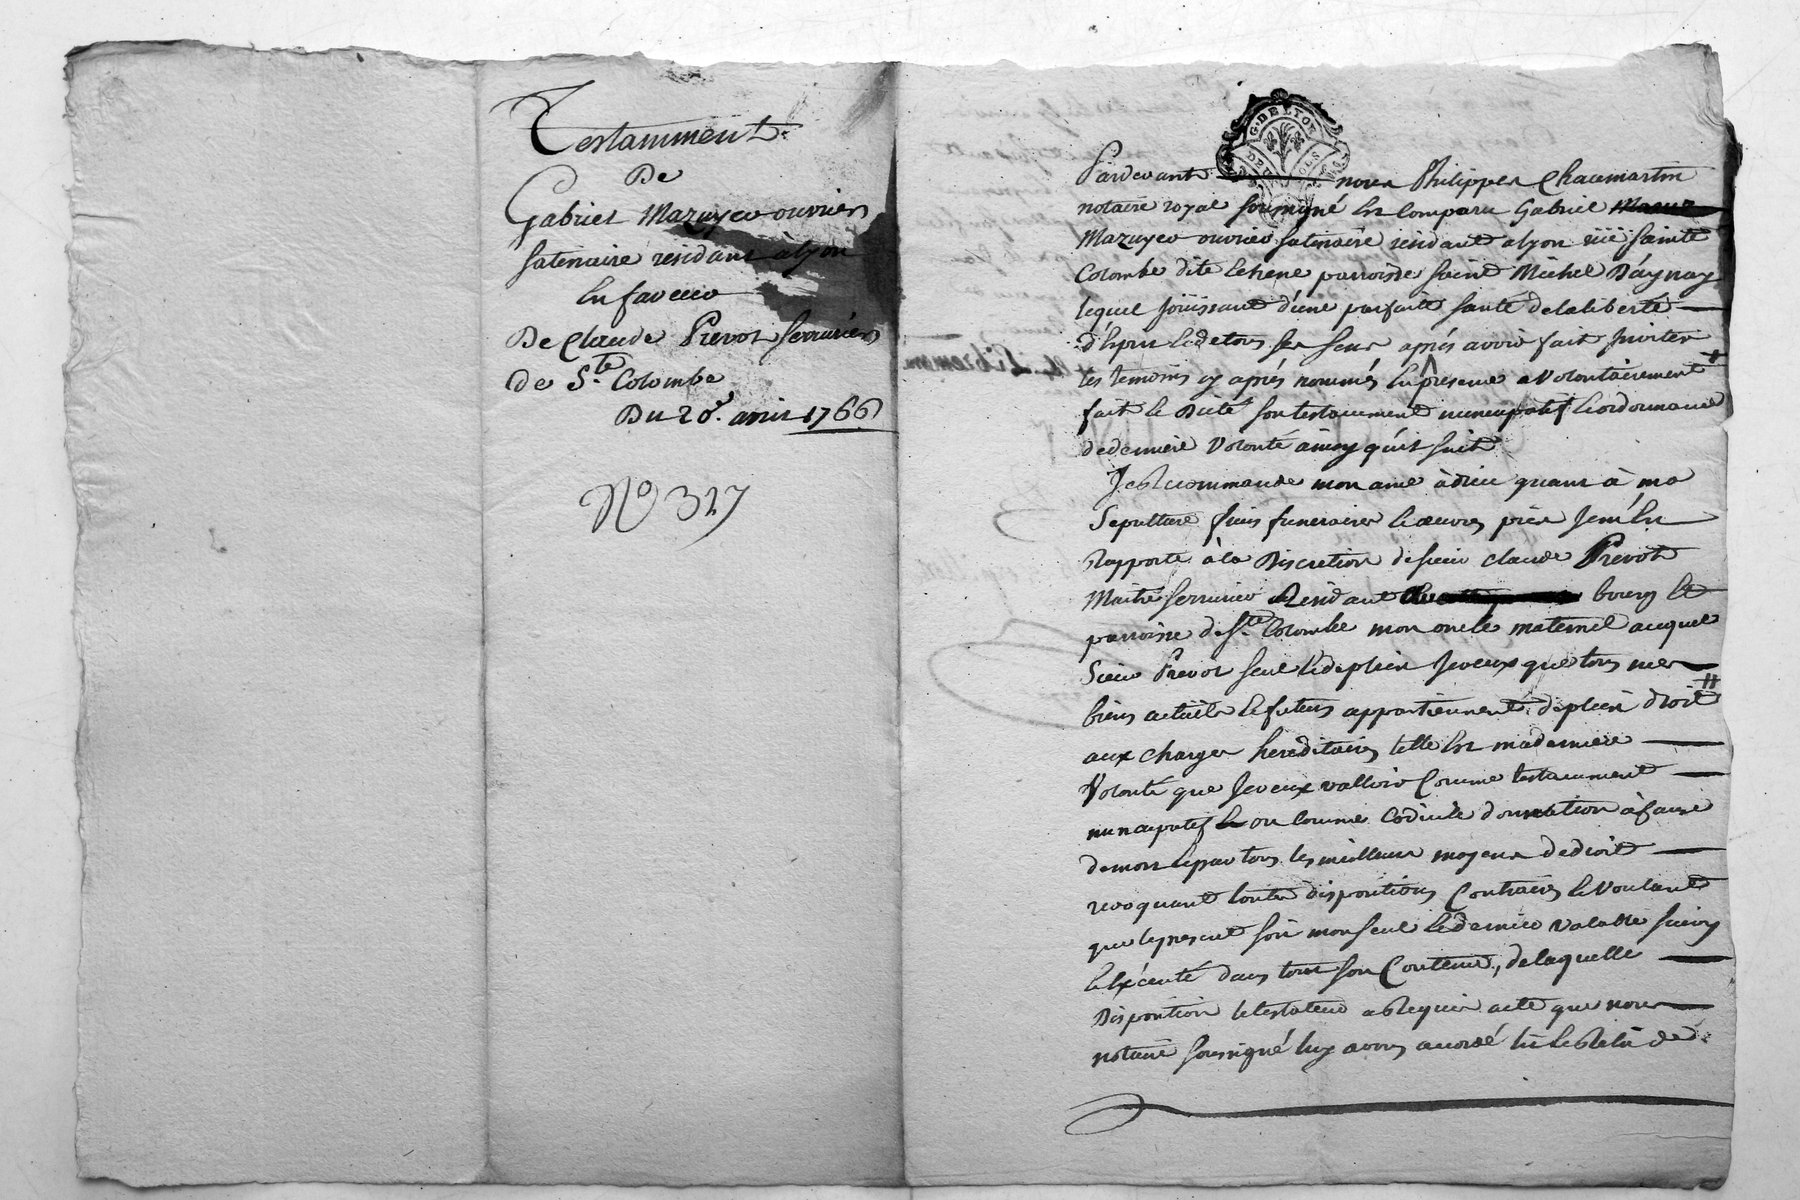 Testamment
De
Gabriel Mazuyer ouvrier
satinaire residant à lyon
En faveur
De Claude Prevot serrurier
de S.te Colombe
Du 20.e avril 1766
N.o 327
G. DE LYON
Pardevant nous Philippes Chaumartin
notaire royal soussigné Est Comparu Gabriel
Mazuyer ouvrier satinaire residant a lyon rüe sainte
Colombe dite Lehene parroisse saint Michel D'aynay
lequel joüissant d'une parfaite santé de la liberté
d'esprit Et de tous ses sens après avoir fait Inviter
les temoins cy après nommés En présence a Volontairement
fait Et Dicté son testamment nuncupatif Et ordonnance
de derniere Volonté ainsy qu'il suit
Je Recommande mon ame à dieu quant à ma
Sepulture frais funeraires Et œuvres pies Je m'En
Rapporte à la Discretion de sieur claude Prevot
Maitre serrurier Residant bourg Et
parroisse de S.te Colombe mon oncle maternel auquel
Sieur Prevot seul Et de plein Je veux que tous mes
biens actuels Et futurs appartiennent de plein droit
aux charges hereditaires telle Est ma derniere
Volonté que Je veux valloir Comme testamment
nuncupatif ou Comme Codicile donnation à fause
de mort Et par tous les meilleurs moyens de droit
revoquant toutes dispositions Contraires Et Voulant
que le present soit mon seul Et dernier valable suivy
Et Exécuté dans tout son Contenu, de laquelle
Disposition le testateur a Requis acte que nous
notaire soussigné luy avons accordé lû Et Relû de